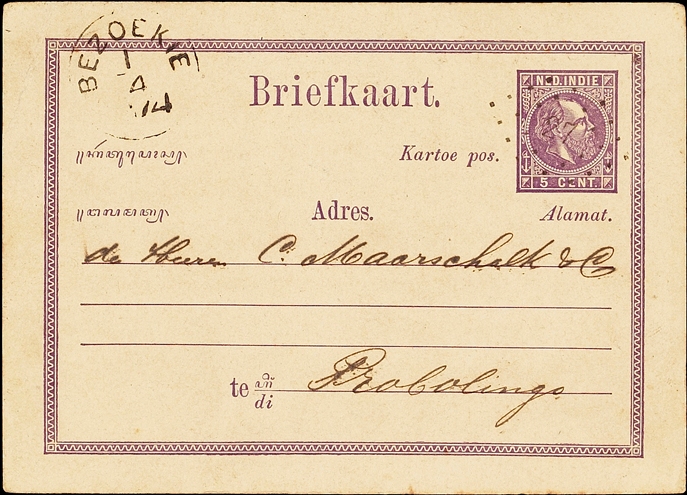 BEZOEKIE
Briefkaart.
NED. INDIE
Kartoe pos.
5 CENT.
Adres.
Alamat.
de Heeren C. Maarschalk & Co
te
di
Probolingo